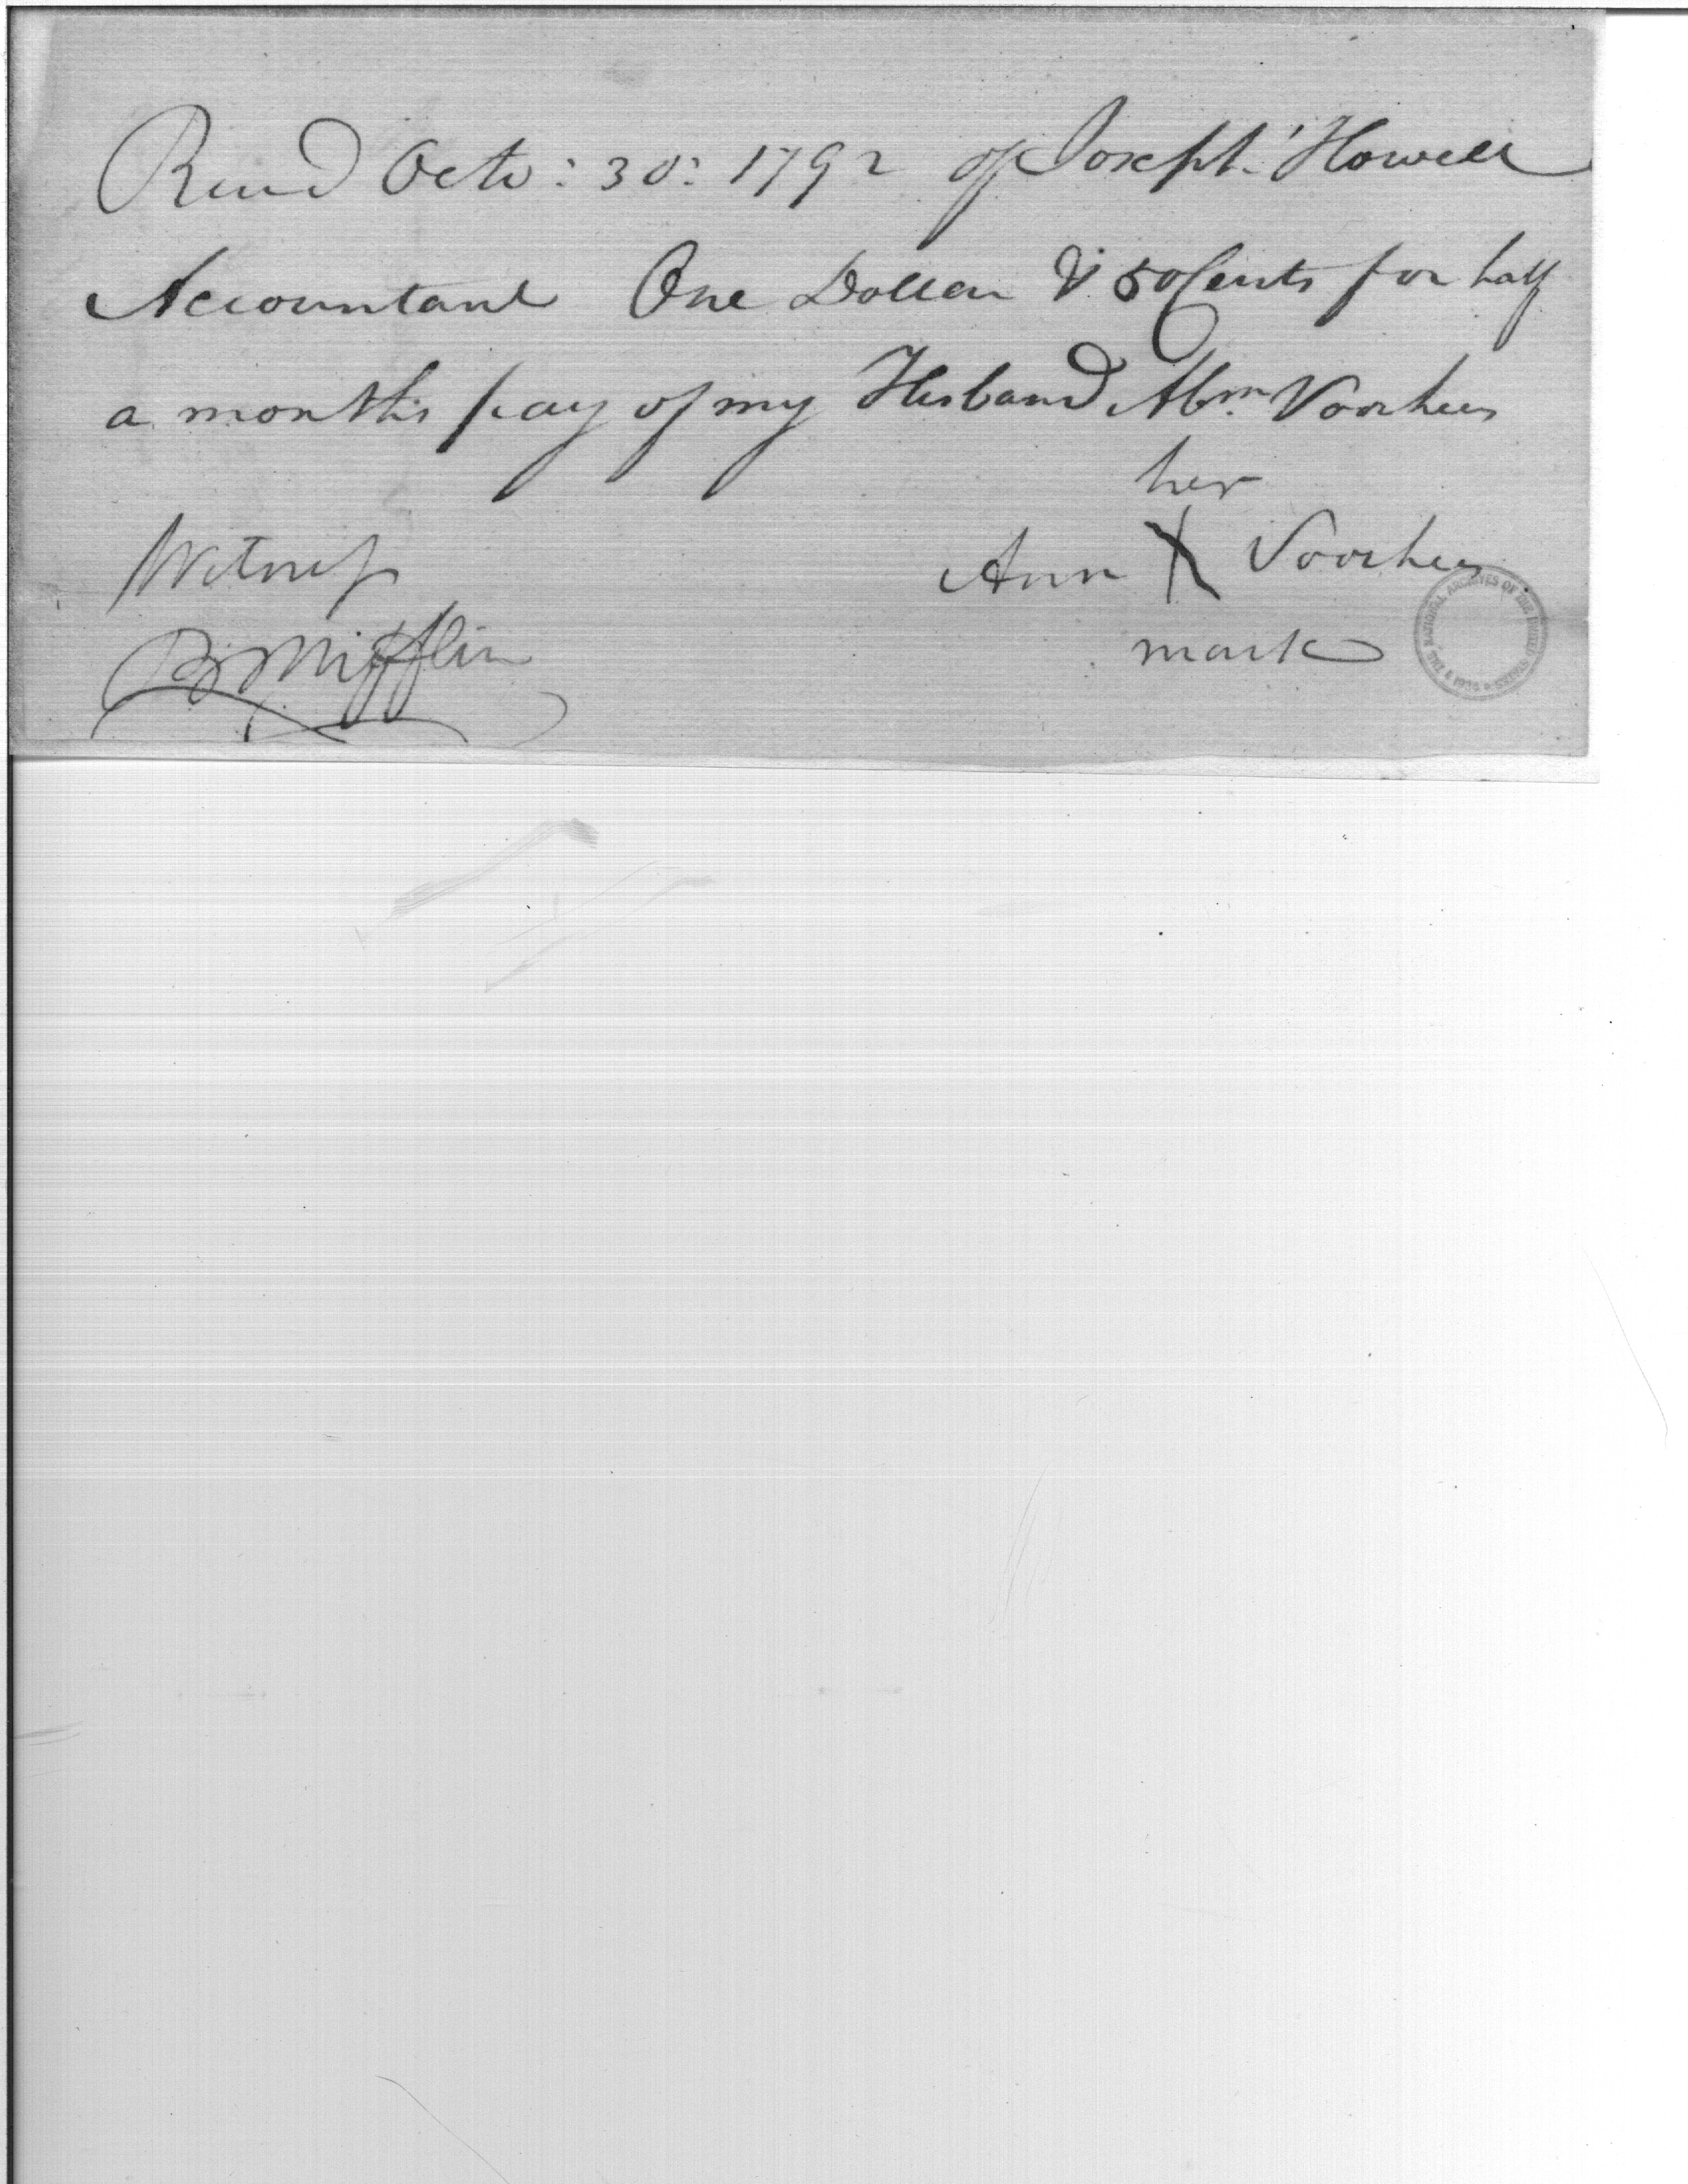 Recd Octo: 30: 1792 of Joseph Howell
Accountant One Dollar & 50 Cents for half
a months pay of my Husband Abm Voorhees
her
Ann X Voorhees
mark
Witness
B Mifflin
THE NATIONAL ARCHIVES OF THE UNITED STATES